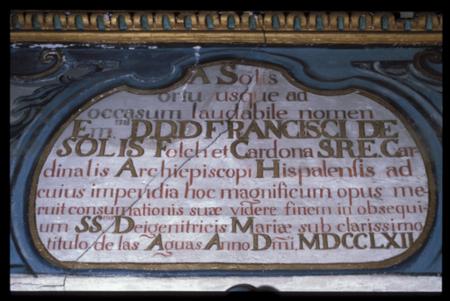 A Solis
ortu usque ad
occasum laudabile nomen
Em.mi DDD FRANCISCI DE
SOLIS Folch et Cardona S.R.E. Car-
dinalis Archiepiscopi Hispalensis ad
cuius impendia hoc magnificum opus me-
ruit consumationis suæ videre finem in obsequi-
um SS.mæ Deigenitricis Mariæ sub clarissimo
titulo de las Aguas Anno Dmi. MDCCLXII